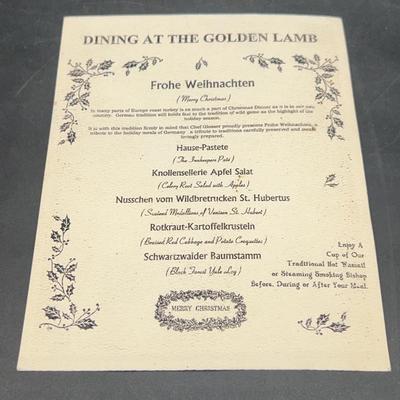 DINING AT THE GOLDEN LAMB
Frohe Weihnachten
(Merry Christmas)
In many parts of Europe roast turkey is as much a part of Christmas Dinner as it is in our
country. German tradition still holds fast to the tradition of wild game as the highlight of the
holiday season.
It is with this tradition firmly in mind that Chef Glosser proudly presents Frohe Weihnachten, a
tribute to the holiday meals of Germany a tribute to traditions carefully preserved and meals
lovingly prepared.
Hause-Pastete
(The Innkeepers Paté)
Knollensellerie Apfel Salat
(Celery Root Salad with Apples)
Nusschen vom Wildbretrucken St. Hubertus
(Sauteed Medallions of Venison St. Hubert)
Rotkraut-Kartoffelkrusteln
(Braised Red Cabbage and Potato Croquettes)
Schwartzwaider Baumstamm
(Black Forest Yule Log)
Enjoy A
Cup of Our
Traditional Hot Wassail
or Steaming Smoking Bishop
Before, During or After Your Meal.
MERRY CHRISTMAS